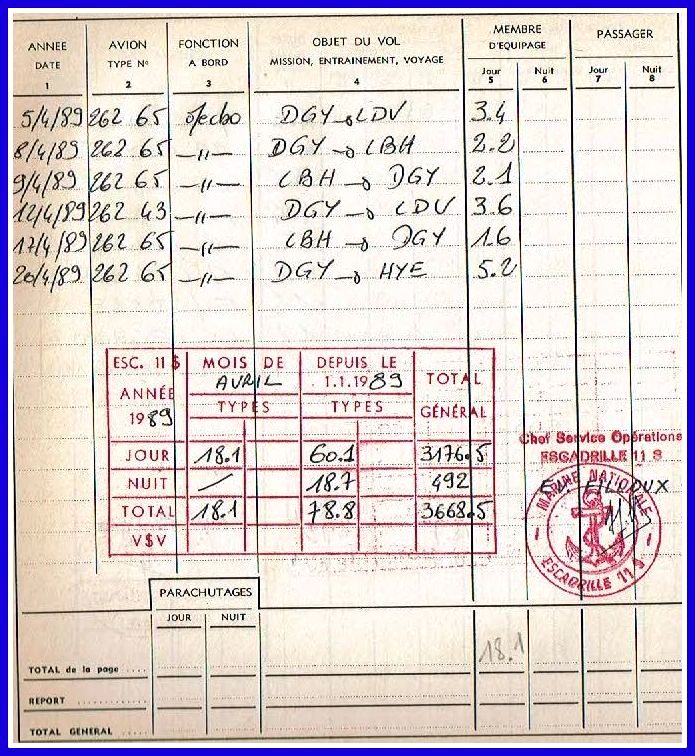 ANNEE AVION FONCTION OBJET DU VOL MEMBRE D'EQUIPAGE PASSAGER
DATE TYPE N° A BORD MISSION, ENTRAINEMENT, VOYAGE Jour Nuit Jour Nuit
1 2 3 4 5 6 7 8
5/4/89 262 65 DGY → LDV 3.4
8/4/89 262 65 —〃— DGY → LBH 2.2
9/4/89 262 65 —〃— LBH → DGY 2.1
12/4/89 262 43 —〃— DGY → LDV 3.6
17/4/89 262 65 —〃— LBH → DGY 1.6
20/4/89 262 65 —〃— DGY → HYE 5.2
ESC. 11 S MOIS DE AVRIL DEPUIS LE 1.1.1989 TOTAL GÉNÉRAL
ANNÉE 1989 TYPES TYPES
JOUR 18.1 60.1 3176.5
NUIT / 18.7 492
TOTAL 18.1 78.8 3668.5
V$V
Chef Service Opérations
ESCADRILLE 11 S
MARINE NATIONALE
ESCADRILLE 11 S
PARACHUTAGES
JOUR NUIT
18.1
TOTAL de la page ....
REPORT ............
TOTAL GENERAL .....